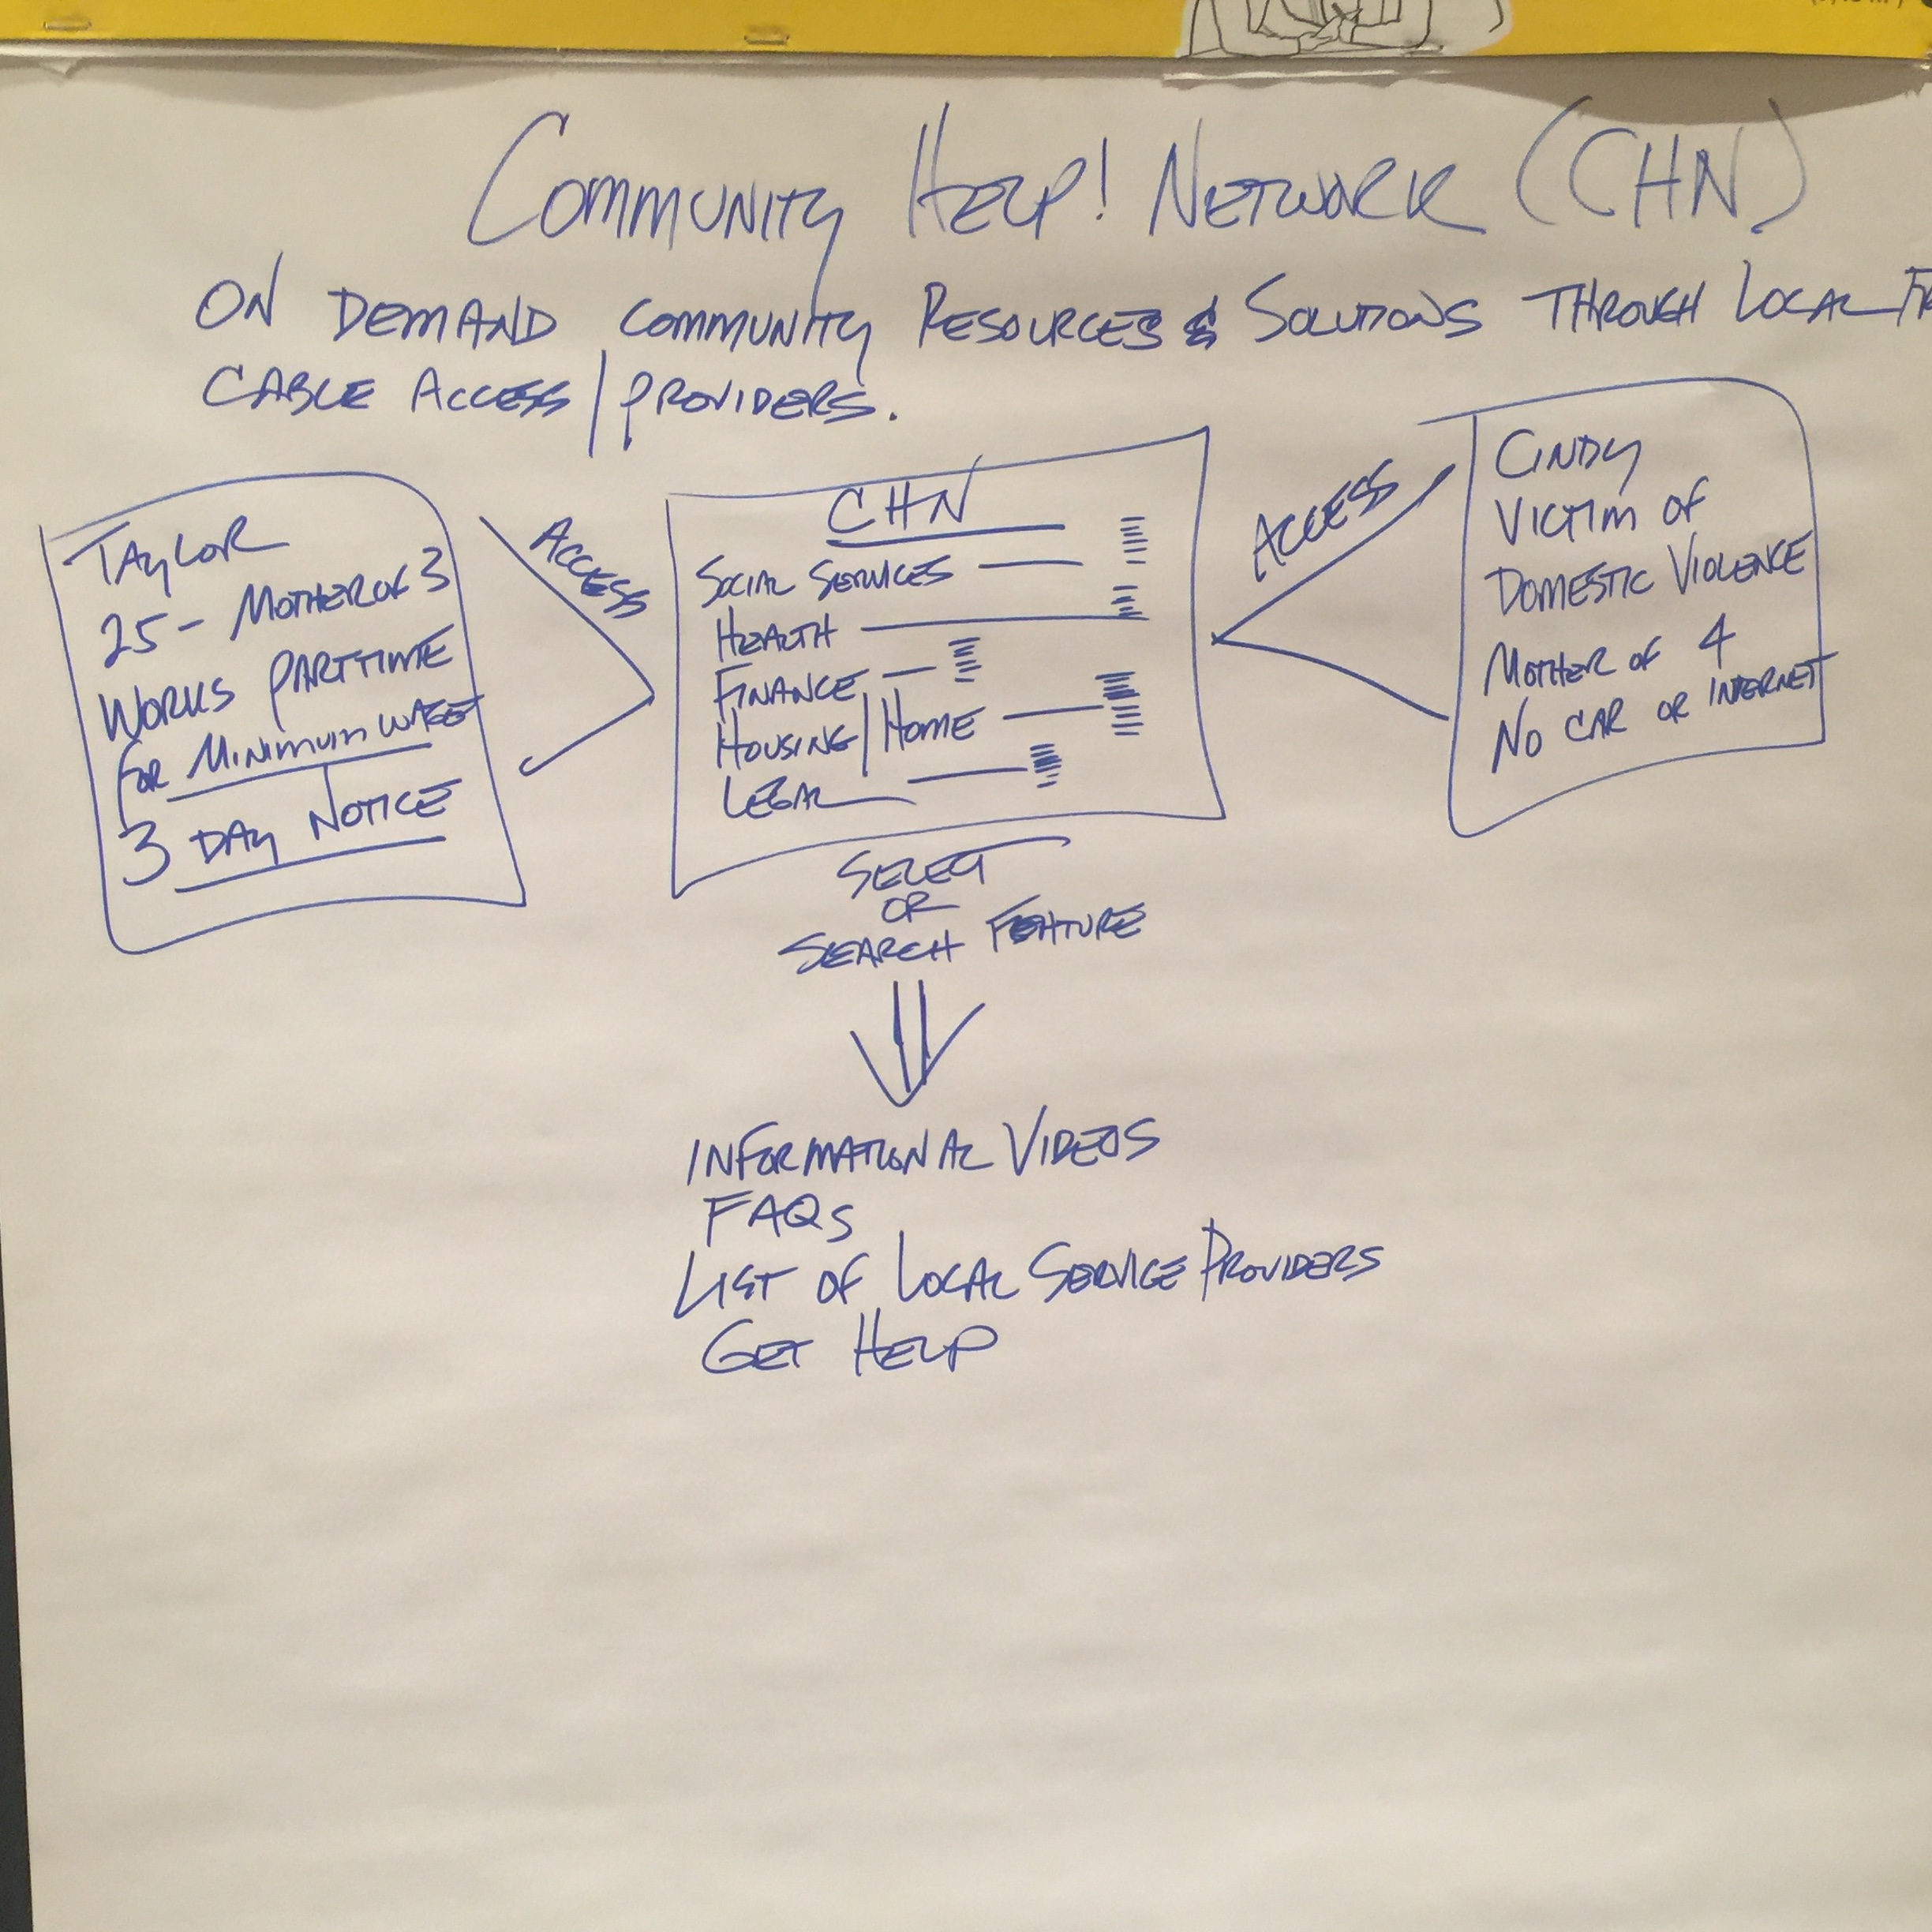 COMMUNITY HELP! NETWORK (CHN)
ON DEMAND COMMUNITY RESOURCES & SOLUTIONS THROUGH LOCAL
CABLE ACCESS/PROVIDERS.
TAYLOR
25- MOTHER OF 3
WORKS PARTTIME
FOR MINIMUM WAGE
3 DAY NOTICE
ACCESS
CHN
SOCIAL SERVICES
HEALTH
FINANCE
HOUSING/HOME
LEGAL
ACCESS
CINDY
VICTIM OF
DOMESTIC VIOLENCE
MOTHER OF 4
NO CAR OR INTERNET
SELECT
OR
SEARCH FEATURE
INFORMATIONAL VIDEOS
FAQS
LIST OF LOCAL SERVICE PROVIDERS
GET HELP